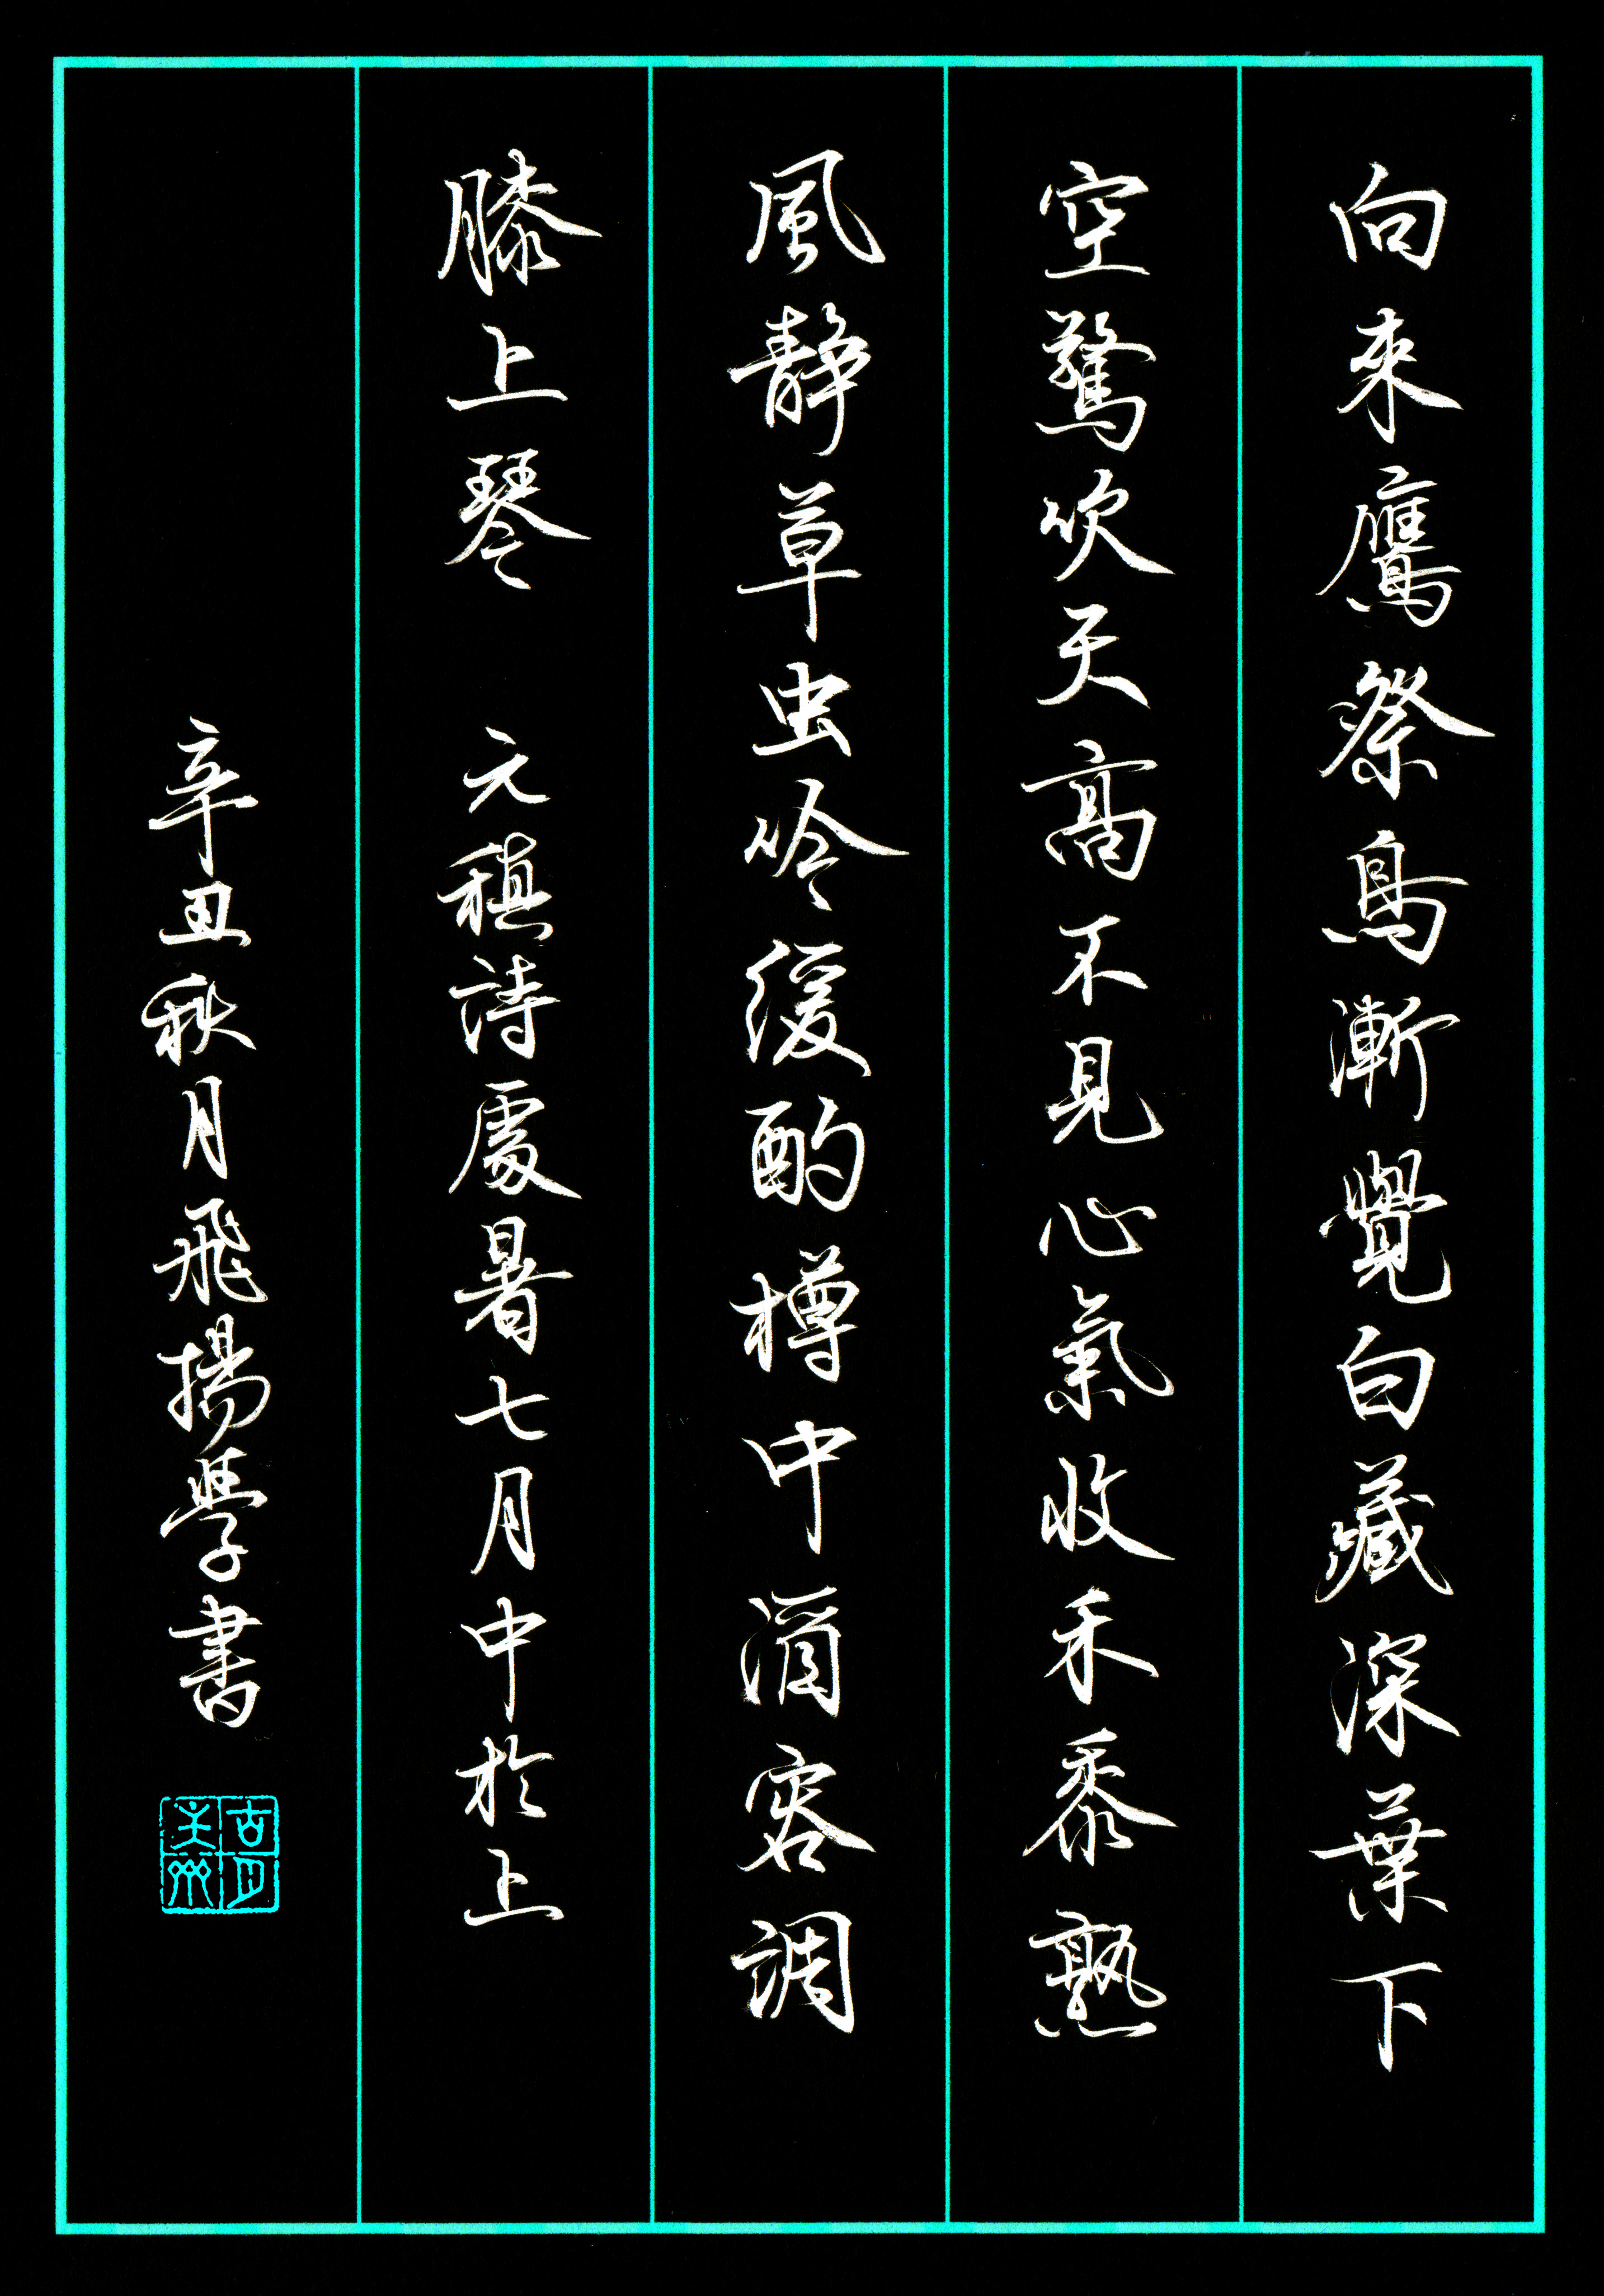 向來鷹祭鳥漸覺白藏深葉下
空驚吹天高不見心氣收禾黍熟
風靜草虫吟緩酌樽中酒容調
膝上琴 元稹詩處暑七月中於上
辛丑秋月飛揚學書